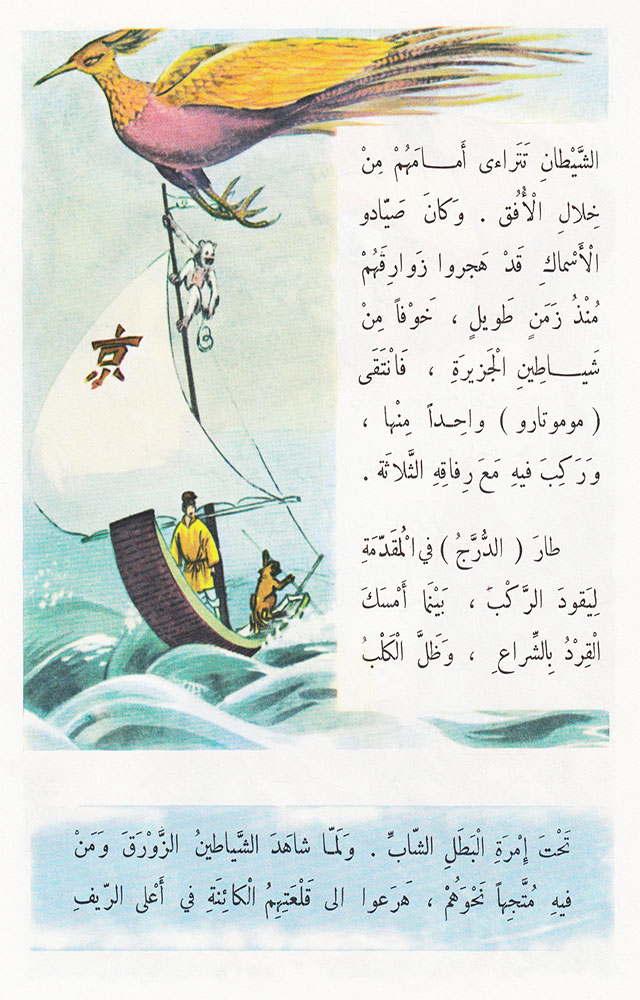 الشَّيْطانِ تَتَراءى أَمــامَهُمْ مِنْ
خِلالِ الْأُفُقِ . وَكانَ صَيّادو
الْأَسْماكِ قَدْ هَجروا زَوارِقَهُمْ
مُنْذُ زَمَنٍ طَويلٍ ، خَوْفاً مِنْ
شَيــاطينِ الْجَزيرَةِ ، فَانْتَقَى
( موموتارو ) واحِــداً مِنْها ،
وَرَكِبَ فيهِ مَعَ رِفاقِهِ الثَّلاثَة .
طارَ ( الدُّرَّجُ ) في الْمُقَدّمَةِ
لِيَقودَ الرَّكْبَ ، بَيْنَما أَمْسَكَ
الْقِرْدُ بِالشِّراعِ ، وَظَلَّ الْكَلْبُ
京
تَحْتَ إِمْرَةِ الْبَطَلِ الشّابِّ . وَلَمّـا شاهَدَ الشَّياطينُ الزَّوْرَقَ وَمَنْ
فيهِ مُتَّجِهاً نَحْوَهُمْ ، هَرَعوا الى قَلْعَتِهِمُ الْكائِنَةِ في أَعْلى الرّيفِ